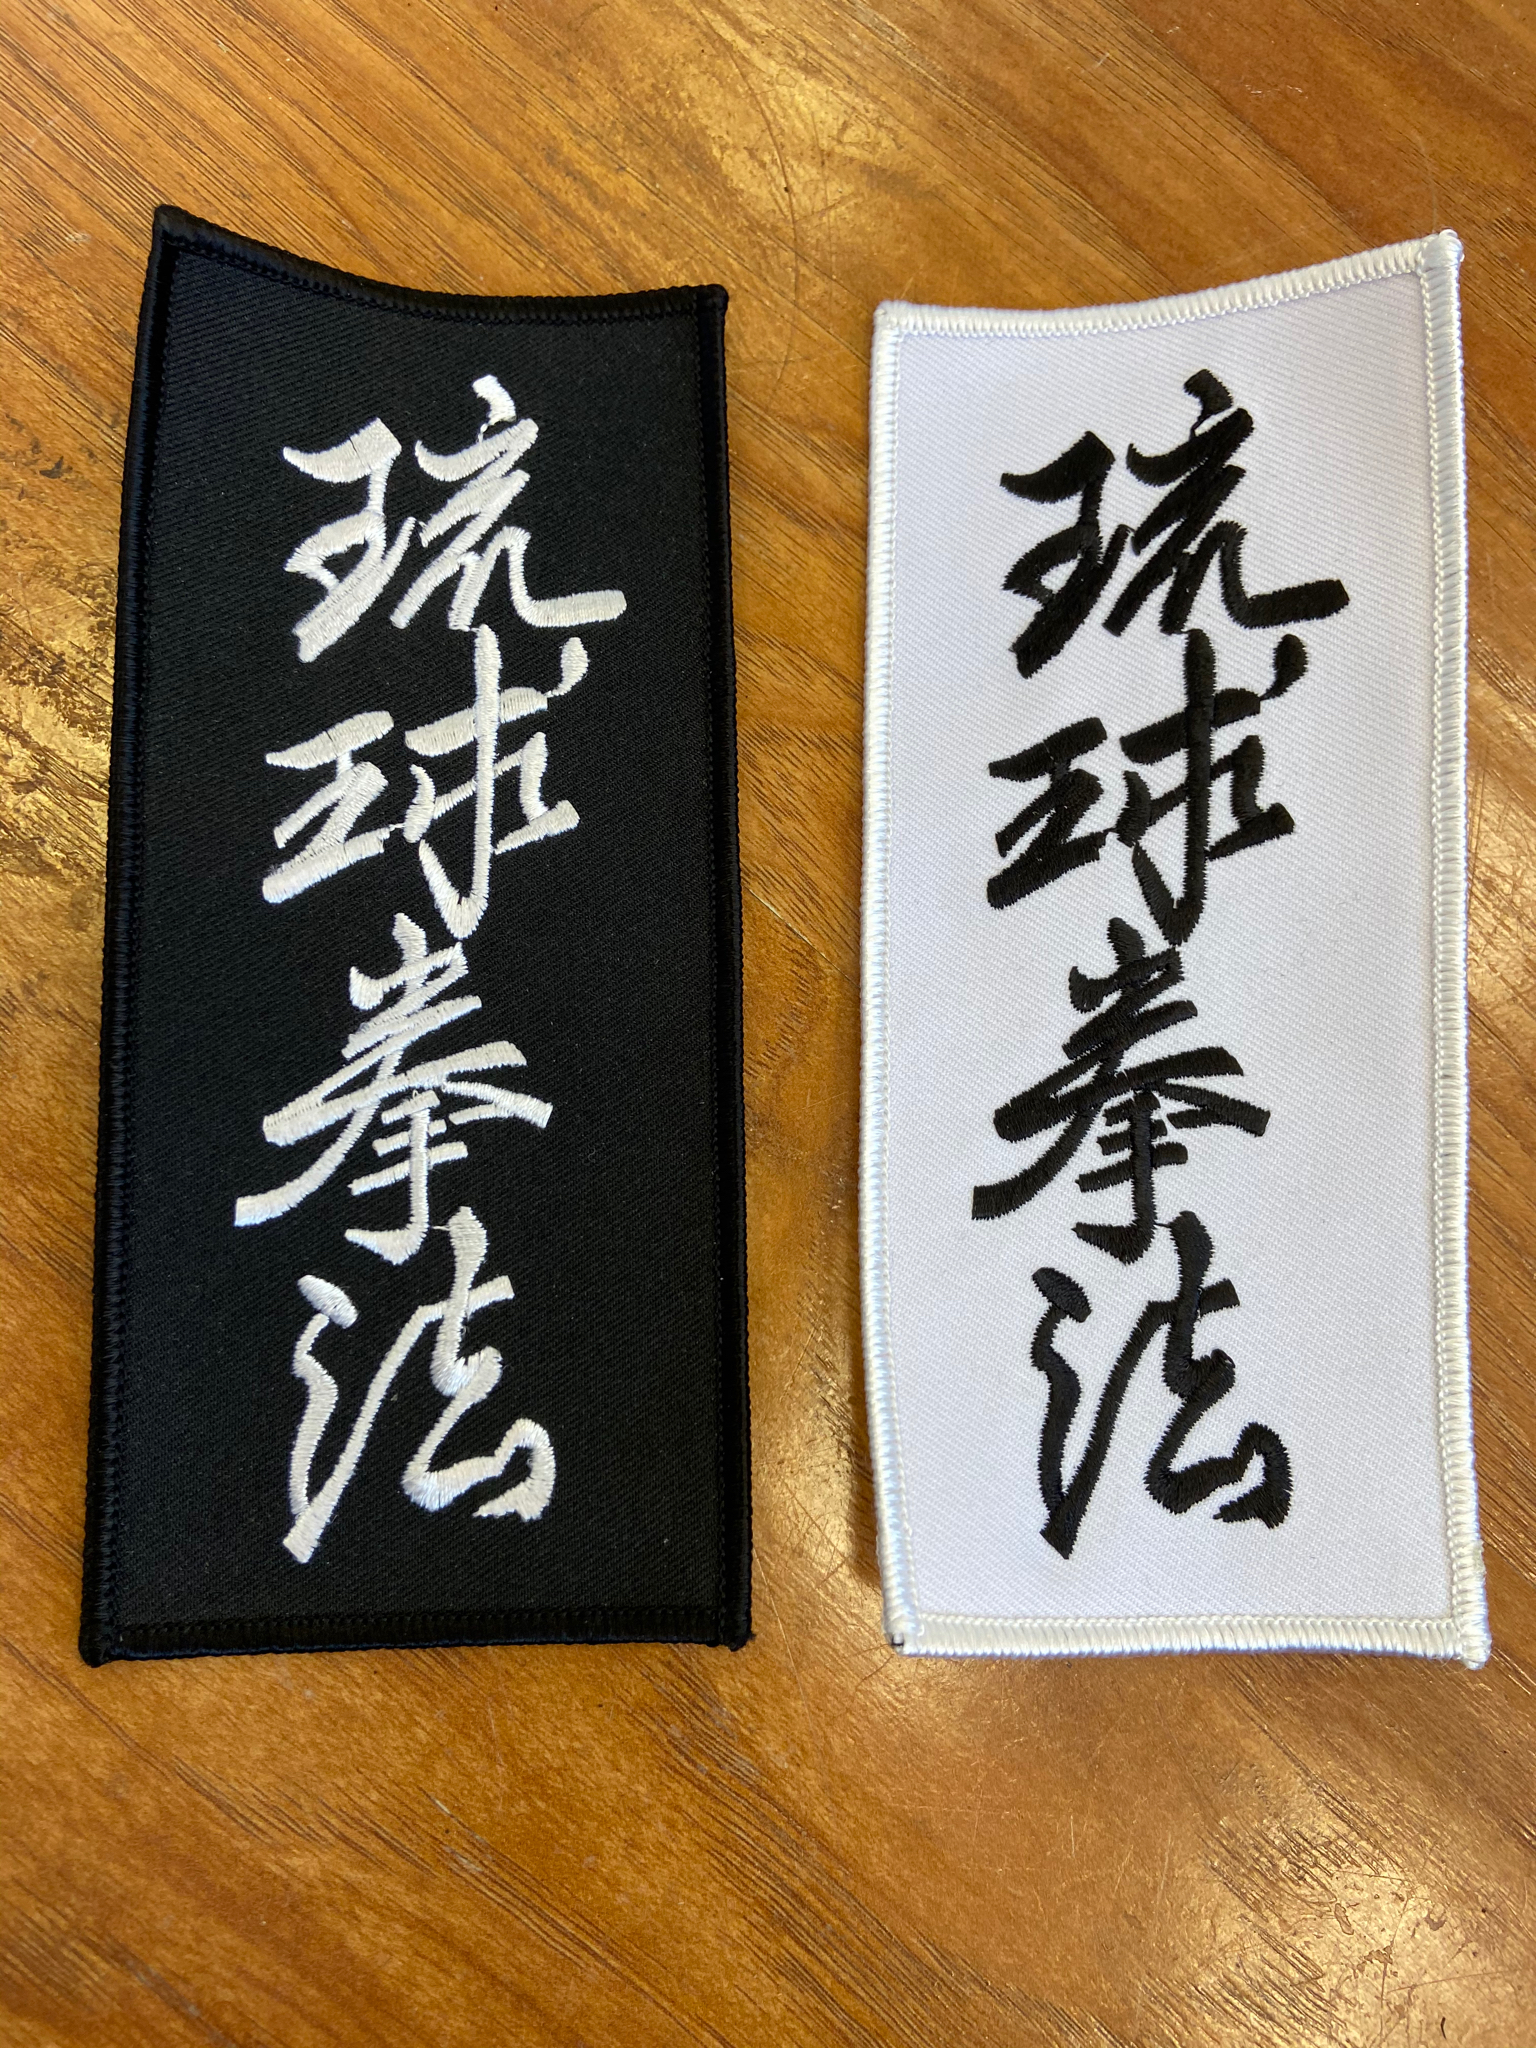 琉球拳法
琉球拳法